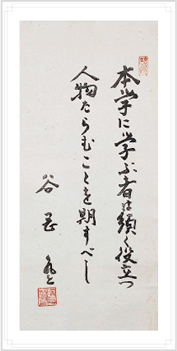 本学に学ぶ者は須く役立つ
人物たらむことを期すべし
谷岡 登